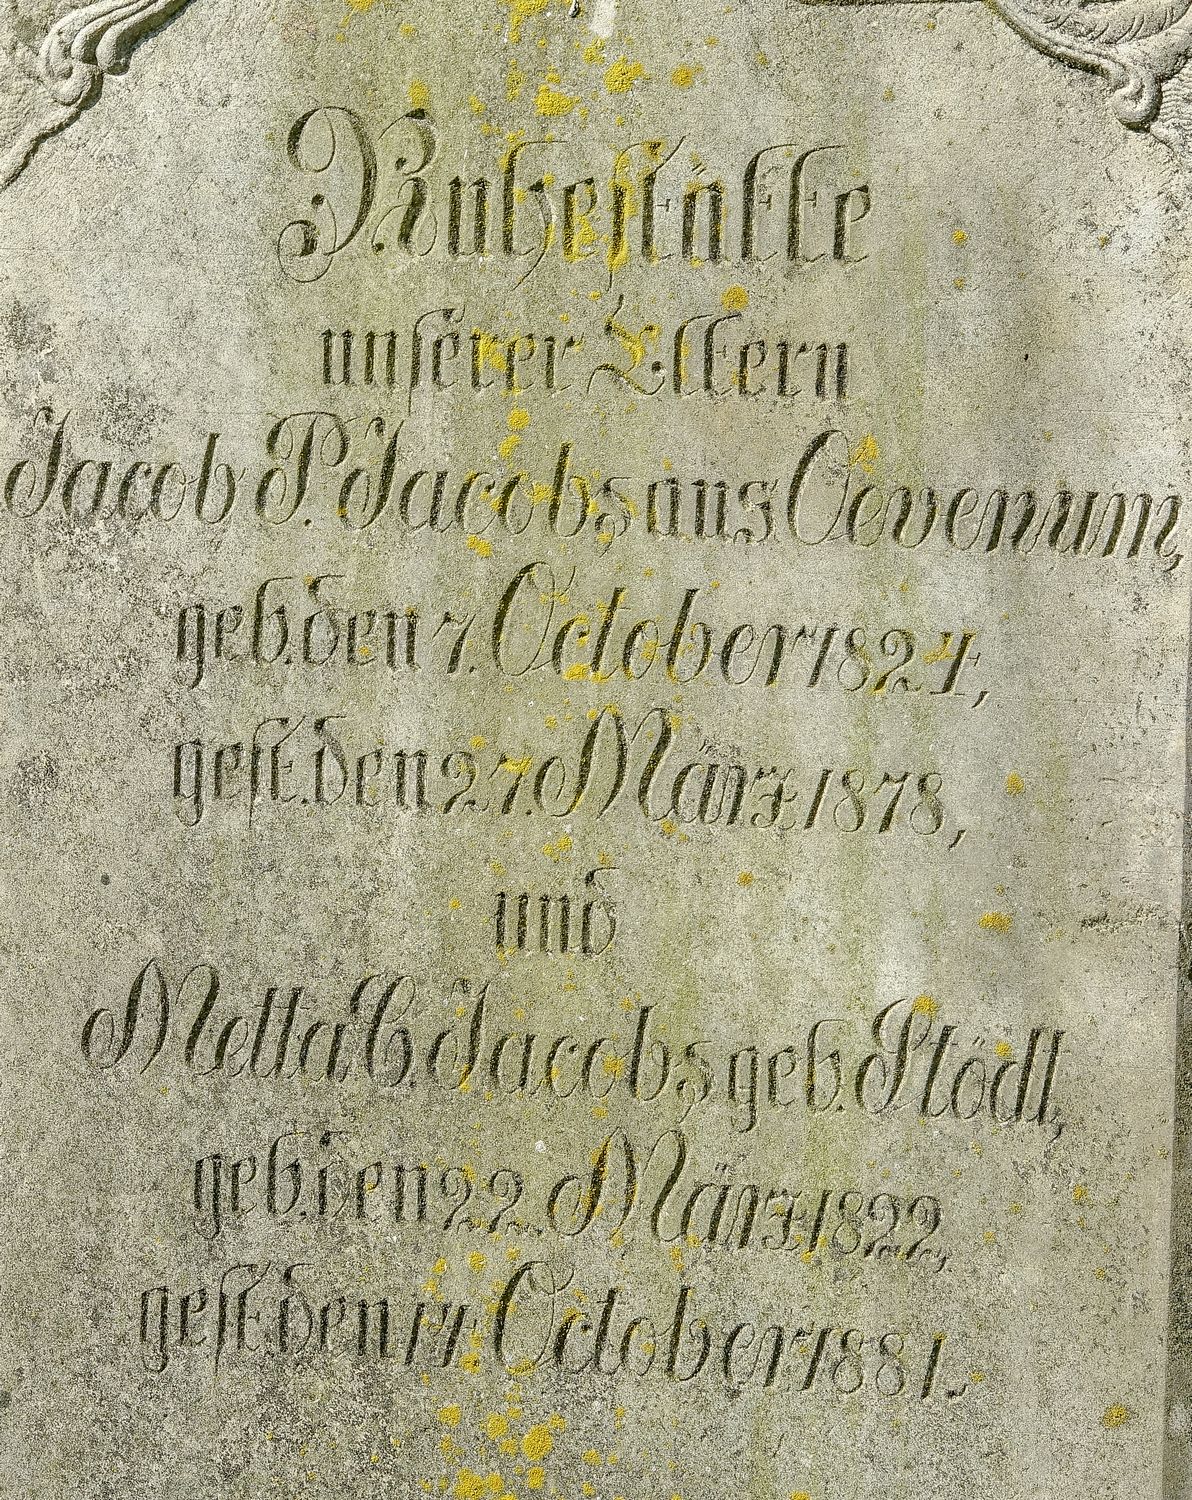 Ruhestätte
unserer Eltern
Jacob P. Jacobs aus Oevenum,
geb. den 7. October 1824,
gest. den 27. März 1878,
und
Metta C. Jacobs geb. Stödt,
geb. den 22. März 1822,
gest. den 14. October 1881.